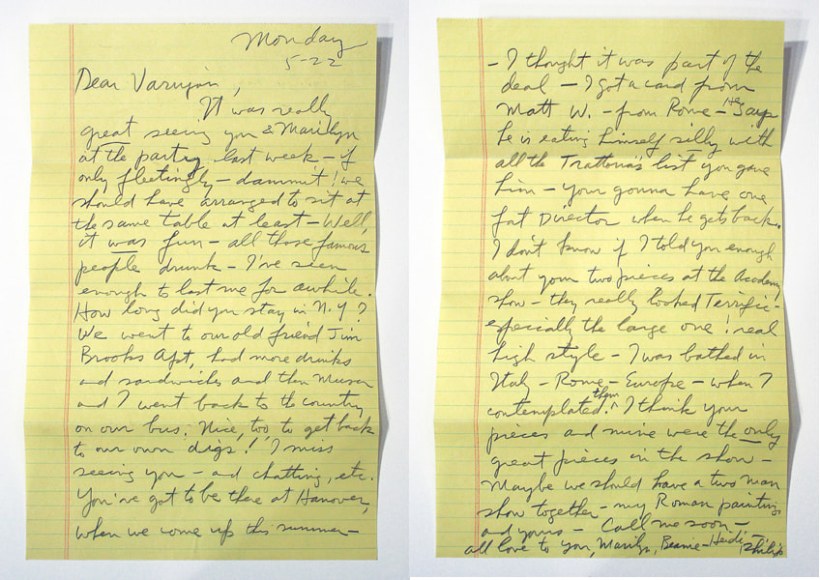 Monday
5-22
Dear Varujan,
It was really
great seeing you & Marilyn
at the party last week - if
only fleetingly - dammit! we
should have arranged to sit at
the same table at least - Well,
it was fun - all those famous
people drunk - I've seen
enough to last me for awhile.
How long did you stay in N.Y?
We went to our old friend Jim
Brooks Apt, had more drinks
and sandwiches and then Musa
and I went back to the country
on our bus. Nice, too to get back
to our own digs! I miss
seeing you - and chatting, etc.
You've got to be there at Hanover,
when we come up this summer -
- I thought it was part of the
deal - I got a card from
Matt W. - from Rome - He Says
he is eating himself silly with
all the Trattoria's list you gave
him - your gonna have one
fat Director when he gets back.
I don't know if I told you enough
about your two pieces at the Academy
show - they really looked Terrific -
especially the large one! real
high style - I was bathed in
Italy - Rome - Europe - when I
contemplated them. I think your
pieces and mine were the only
great pieces in the show -
Maybe we should have a two man
show together - my Roman paintings
and yours - Call me soon -
all love to you, Marilyn, Beanie - Heidi - Philip